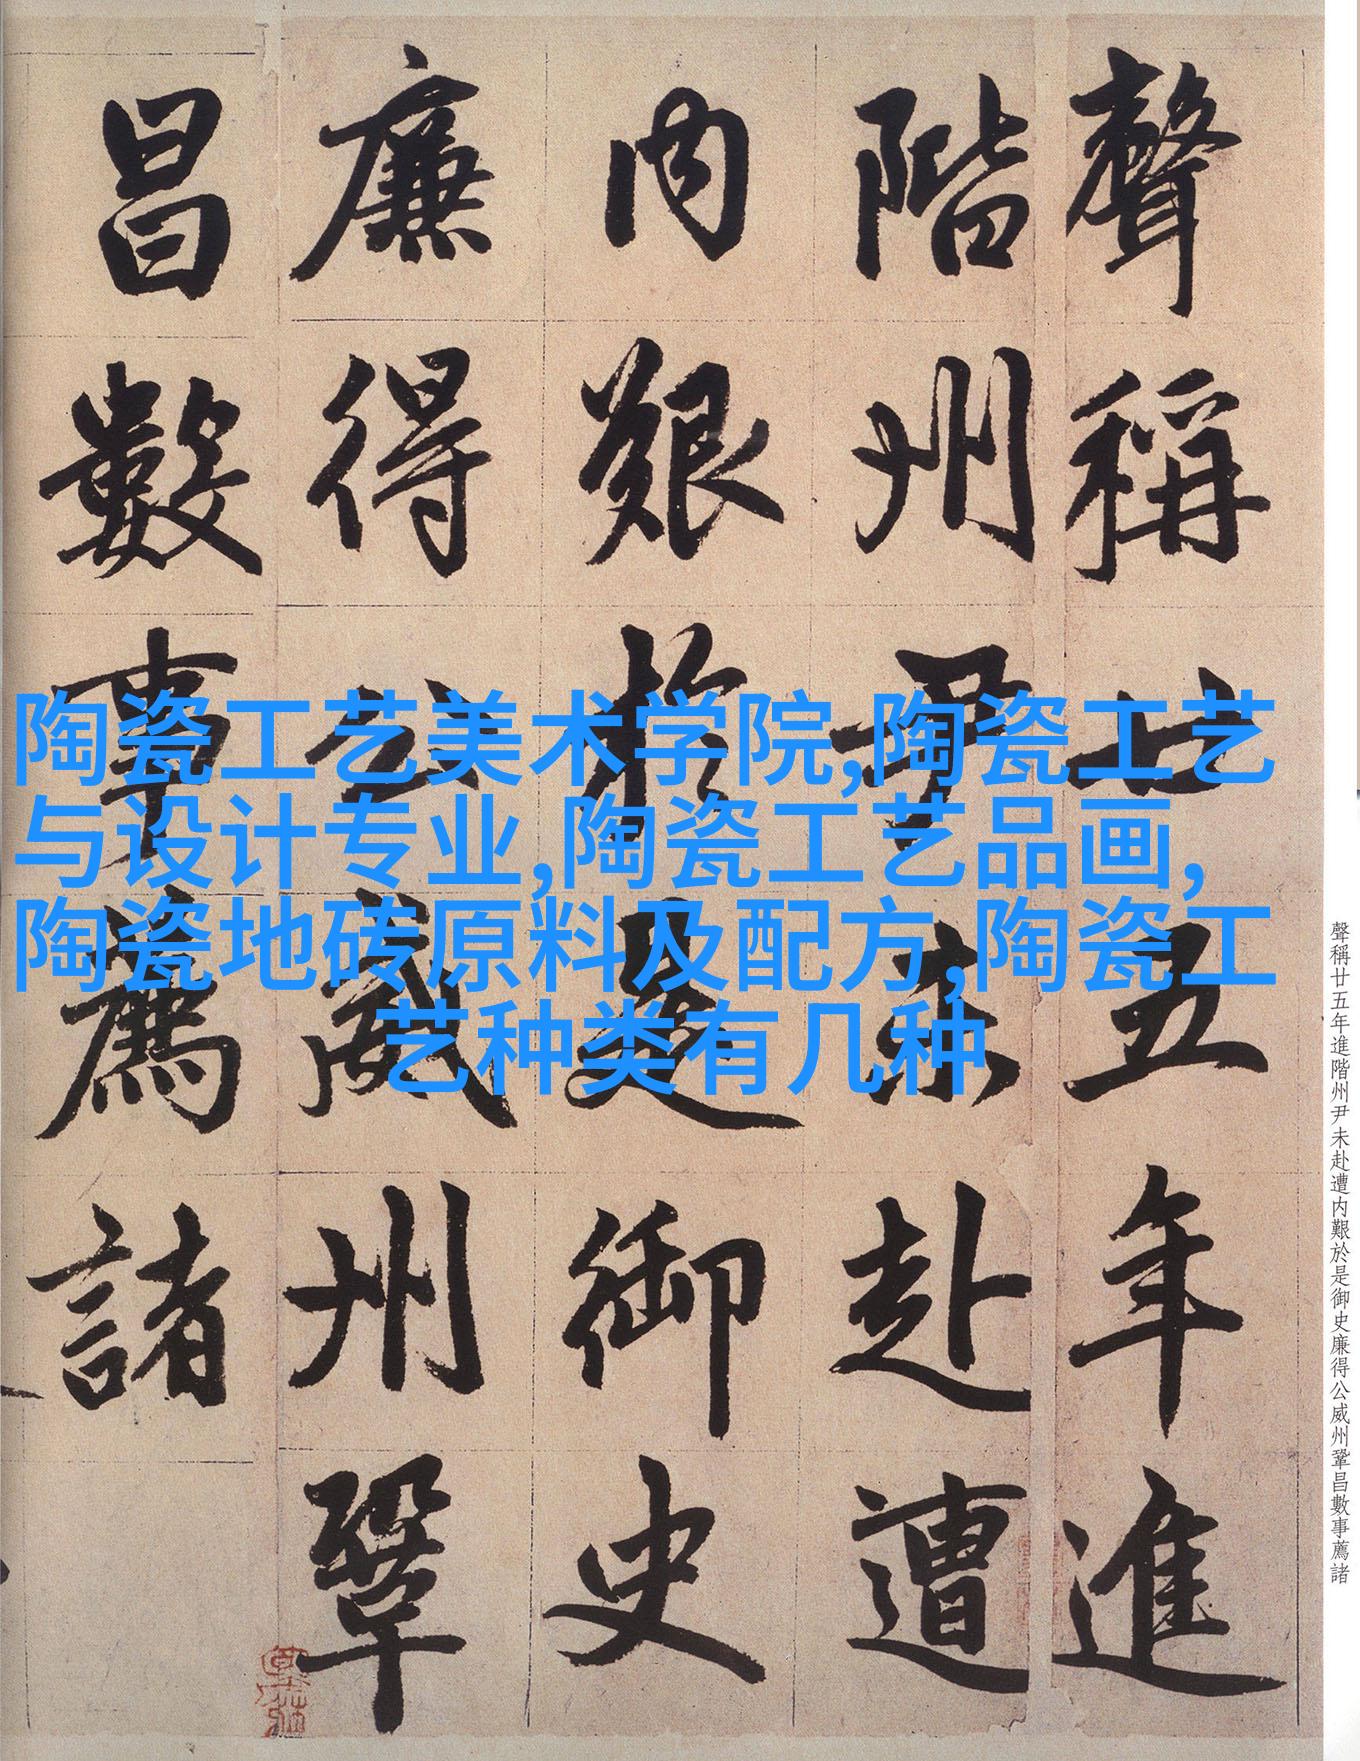 聲稱廿五年進
階州尹未赴遭
内艱於是御史
廉得公威州鞏
昌數事薦諸
陶瓷工艺美术学院,陶瓷工艺
与设计专业,陶瓷工艺品画,
陶瓷地砖原料及配方,陶瓷工
艺种类有几种
聲稱廿五年進階州尹未赴遭内艱於是御史廉得公威州鞏昌數事薦諸